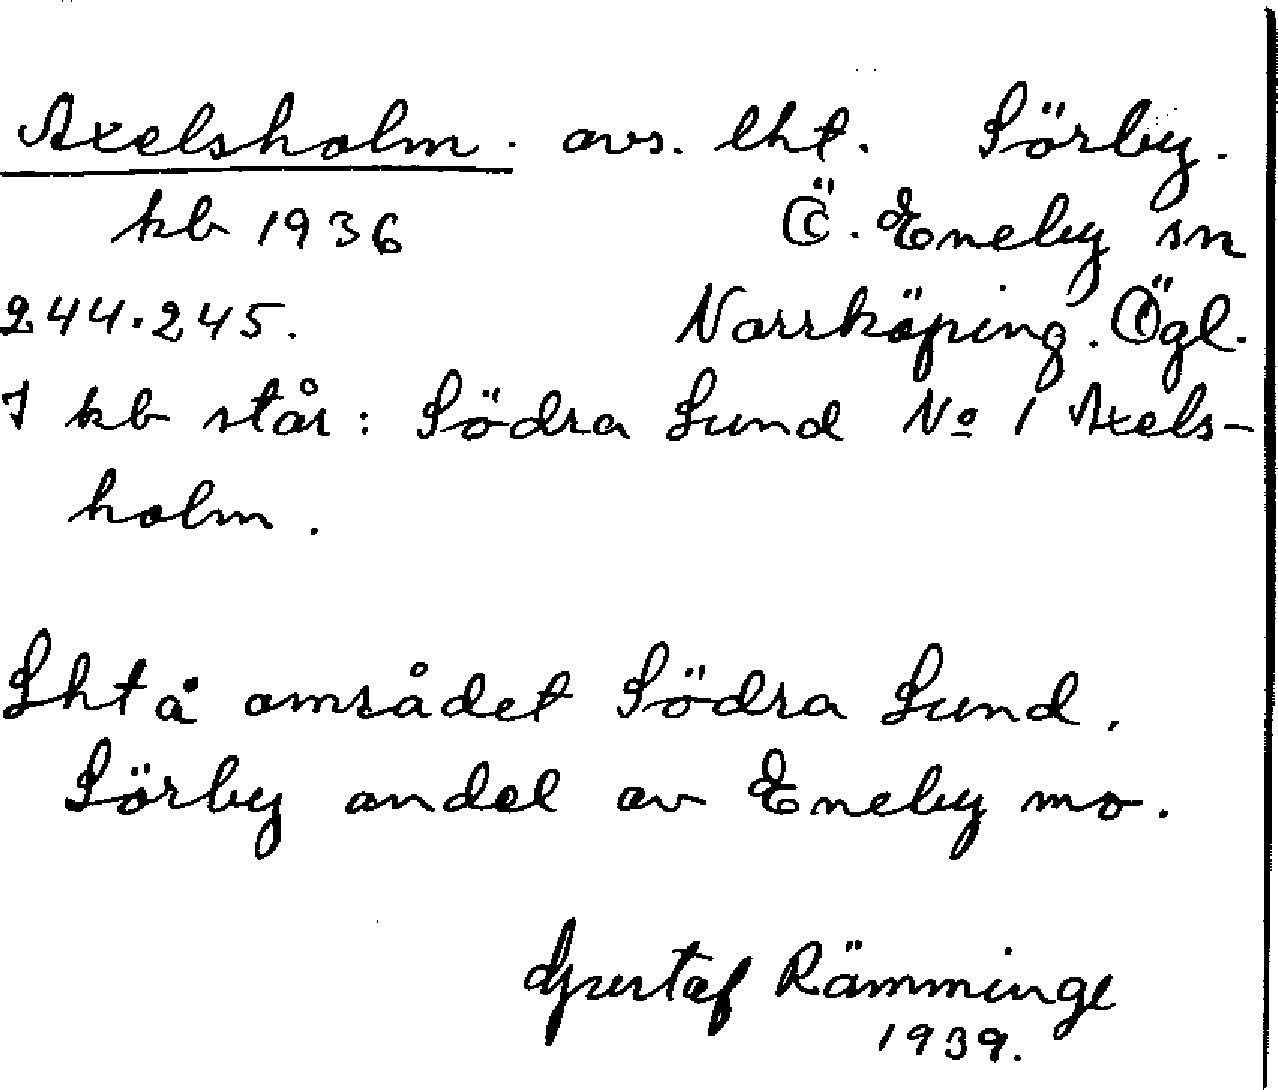 Axelsholm. avs. lht. Sörby.
kb 1936 Ö. Eneby sn
244.245. Norrköping. Ögl.
I kb står: Södra Sund No 1 Axels-
holm.
Lht å området Södra Sund.
Sörby andel av Eneby mo.
Gustaf Rämminge
1939.